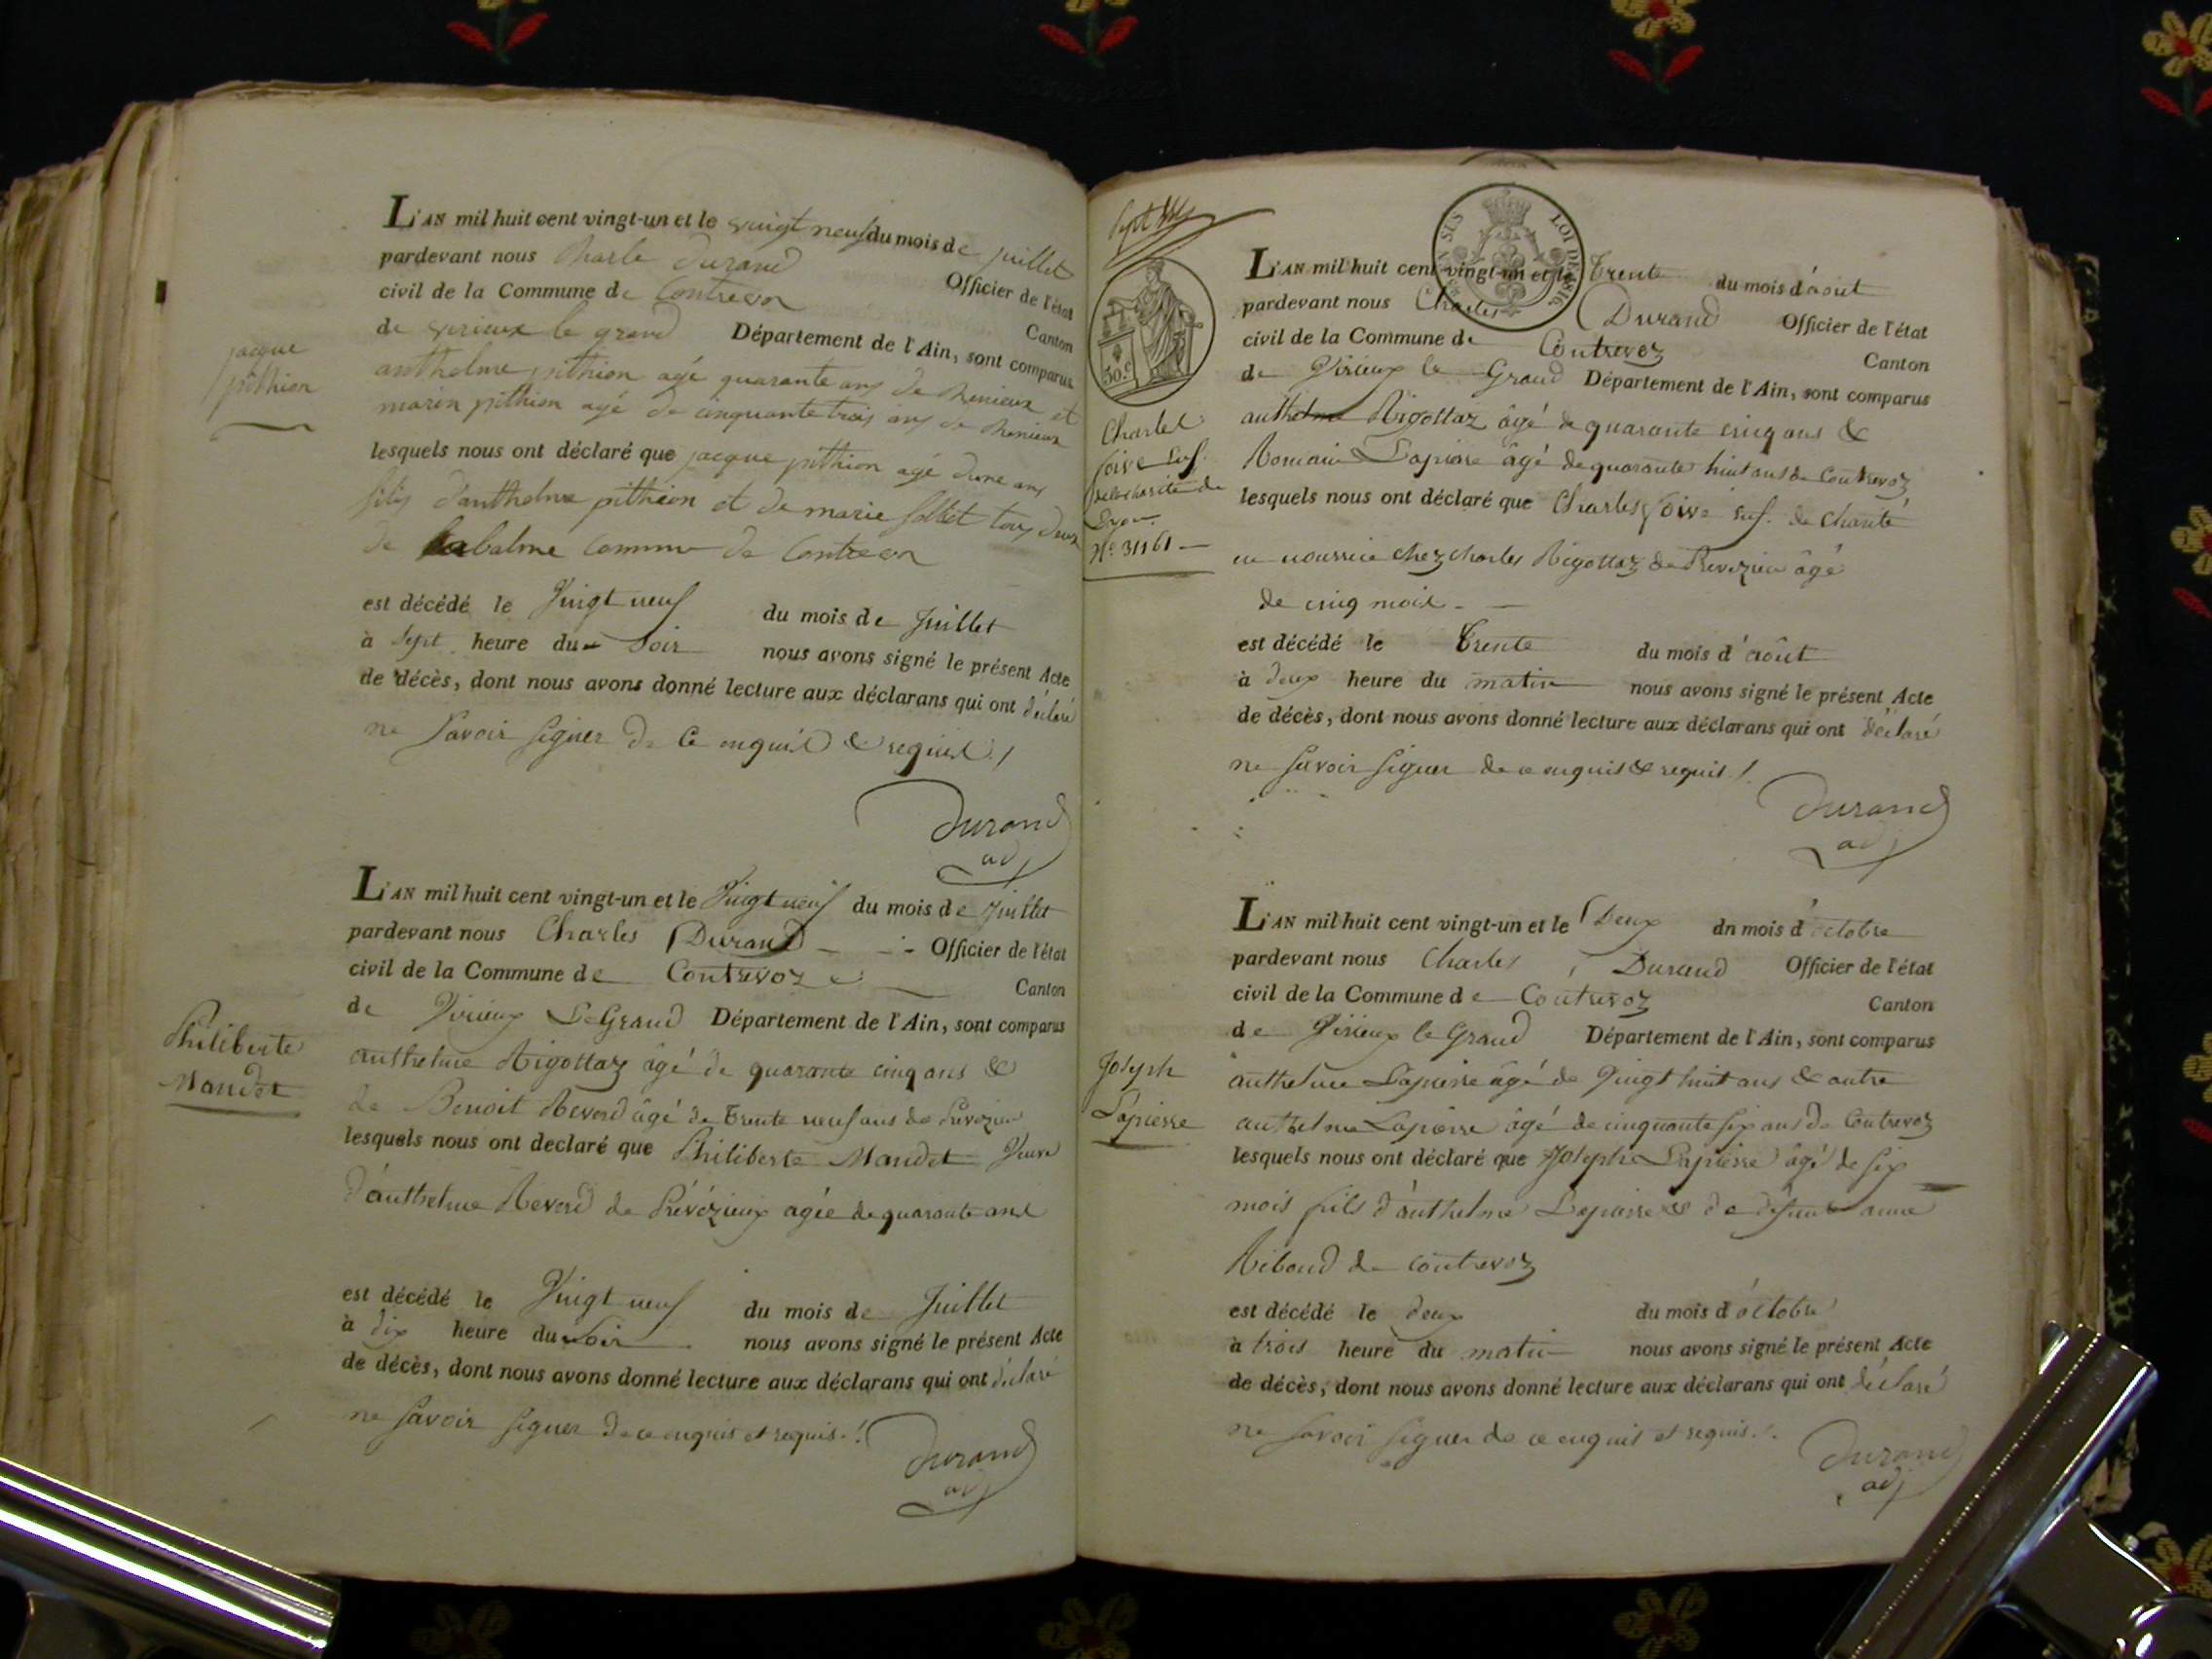 L'AN mil huit cent vingt-un et le vingt neuf du mois de juillet
pardevant nous Charle Durand Officier de l'état
civil de la Commune de Contrevoz Canton
de virieux le grand Département de l'Ain, sont comparus
anthelme pithion agé quarante ans de et
marin pithion agé de cinquante trois ans de
lesquels nous ont déclaré que jacque pithion agé d'une ans
fils d'anthelme pithion et de marie tous deux
de labalme commune de Contrevoz
est décédé le Vingt neuf du mois de Juillet
à Sept heure du Soir nous avons signé le présent Acte
de décès, dont nous avons donné lecture aux déclarans qui ont déclaré
ne Savoir Signer de Ce enquis & requis !
Durand
adj
jacque
pithion
L'AN mil huit cent vingt-un et le Vingt neuf du mois de Juillet
pardevant nous Charles Durand Officier de l'état
civil de la Commune de Contrevoz Canton
de Virieux Le Grand Département de l'Ain, sont comparus
anthelme Rigottaz âgé de quarante cinq ans &
de Benoit Reverd âgé de Trente neuf ans de Prévezieu
lesquels nous ont declaré que Philiberte Mandet Veuve
d'anthelme Reverd de Prévézieux agée de quarante ans
est décédé le Vingt neuf du mois de Juillet
à dix heure du Soir nous avons signé le présent Acte
de décès, dont nous avons donné lecture aux déclarans qui ont déclaré
ne Savoir Signer de ce enquis et requis !
Durand
adj
Philiberte
Mandet
LOI DE 1816
50.c
L'AN mil huit cent vingt-un et le Trente du mois d'août
pardevant nous Charles Durand Officier de l'état
civil de la Commune de Contrevoz Canton
de Virieux le Grand Département de l'Ain, sont comparus
anthelme Rigottaz âgé de quarante cinq ans &
Romain Lapierre âgé de quarante huit ans de Contrevoz
lesquels nous ont déclaré que Charles Soive enf. de Charité
en nourrice chez charles Rigottaz de Prevezieu âgé
de cinq mois
est décédé le Trente du mois d'août
à deux heure du matin nous avons signé le présent Acte
de décès, dont nous avons donné lecture aux déclarans qui ont déclaré
ne Savoir Signer de ce enquis & requis !
Durand
adj
Charles
Soive enf.
de la charité de
Lyon
N.º 31161
L'AN mil huit cent vingt-un et le Deux dn mois d'octobre
pardevant nous Charles Durand Officier de l'état
civil de la Commune de Contrevoz Canton
de Virieux le Grand Département de l'Ain, sont comparus
anthelme Lapierre âgé de Vingt huit ans & autre
anthelme Lapierre âgé de cinquante six ans de Contrevoz
lesquels nous ont déclaré que Joseph Lapierre âgé de six
mois fils d'anthelme Lapierre & de défunte anne
Riboud de contrevoz
est décédé le deux du mois d'octobre
à trois heure du matin nous avons signé le présent Acte
de décès, dont nous avons donné lecture aux déclarans qui ont déclaré
ne Savoir Signer de ce enquis et requis !
Durand
adj
Joseph
Lapierre